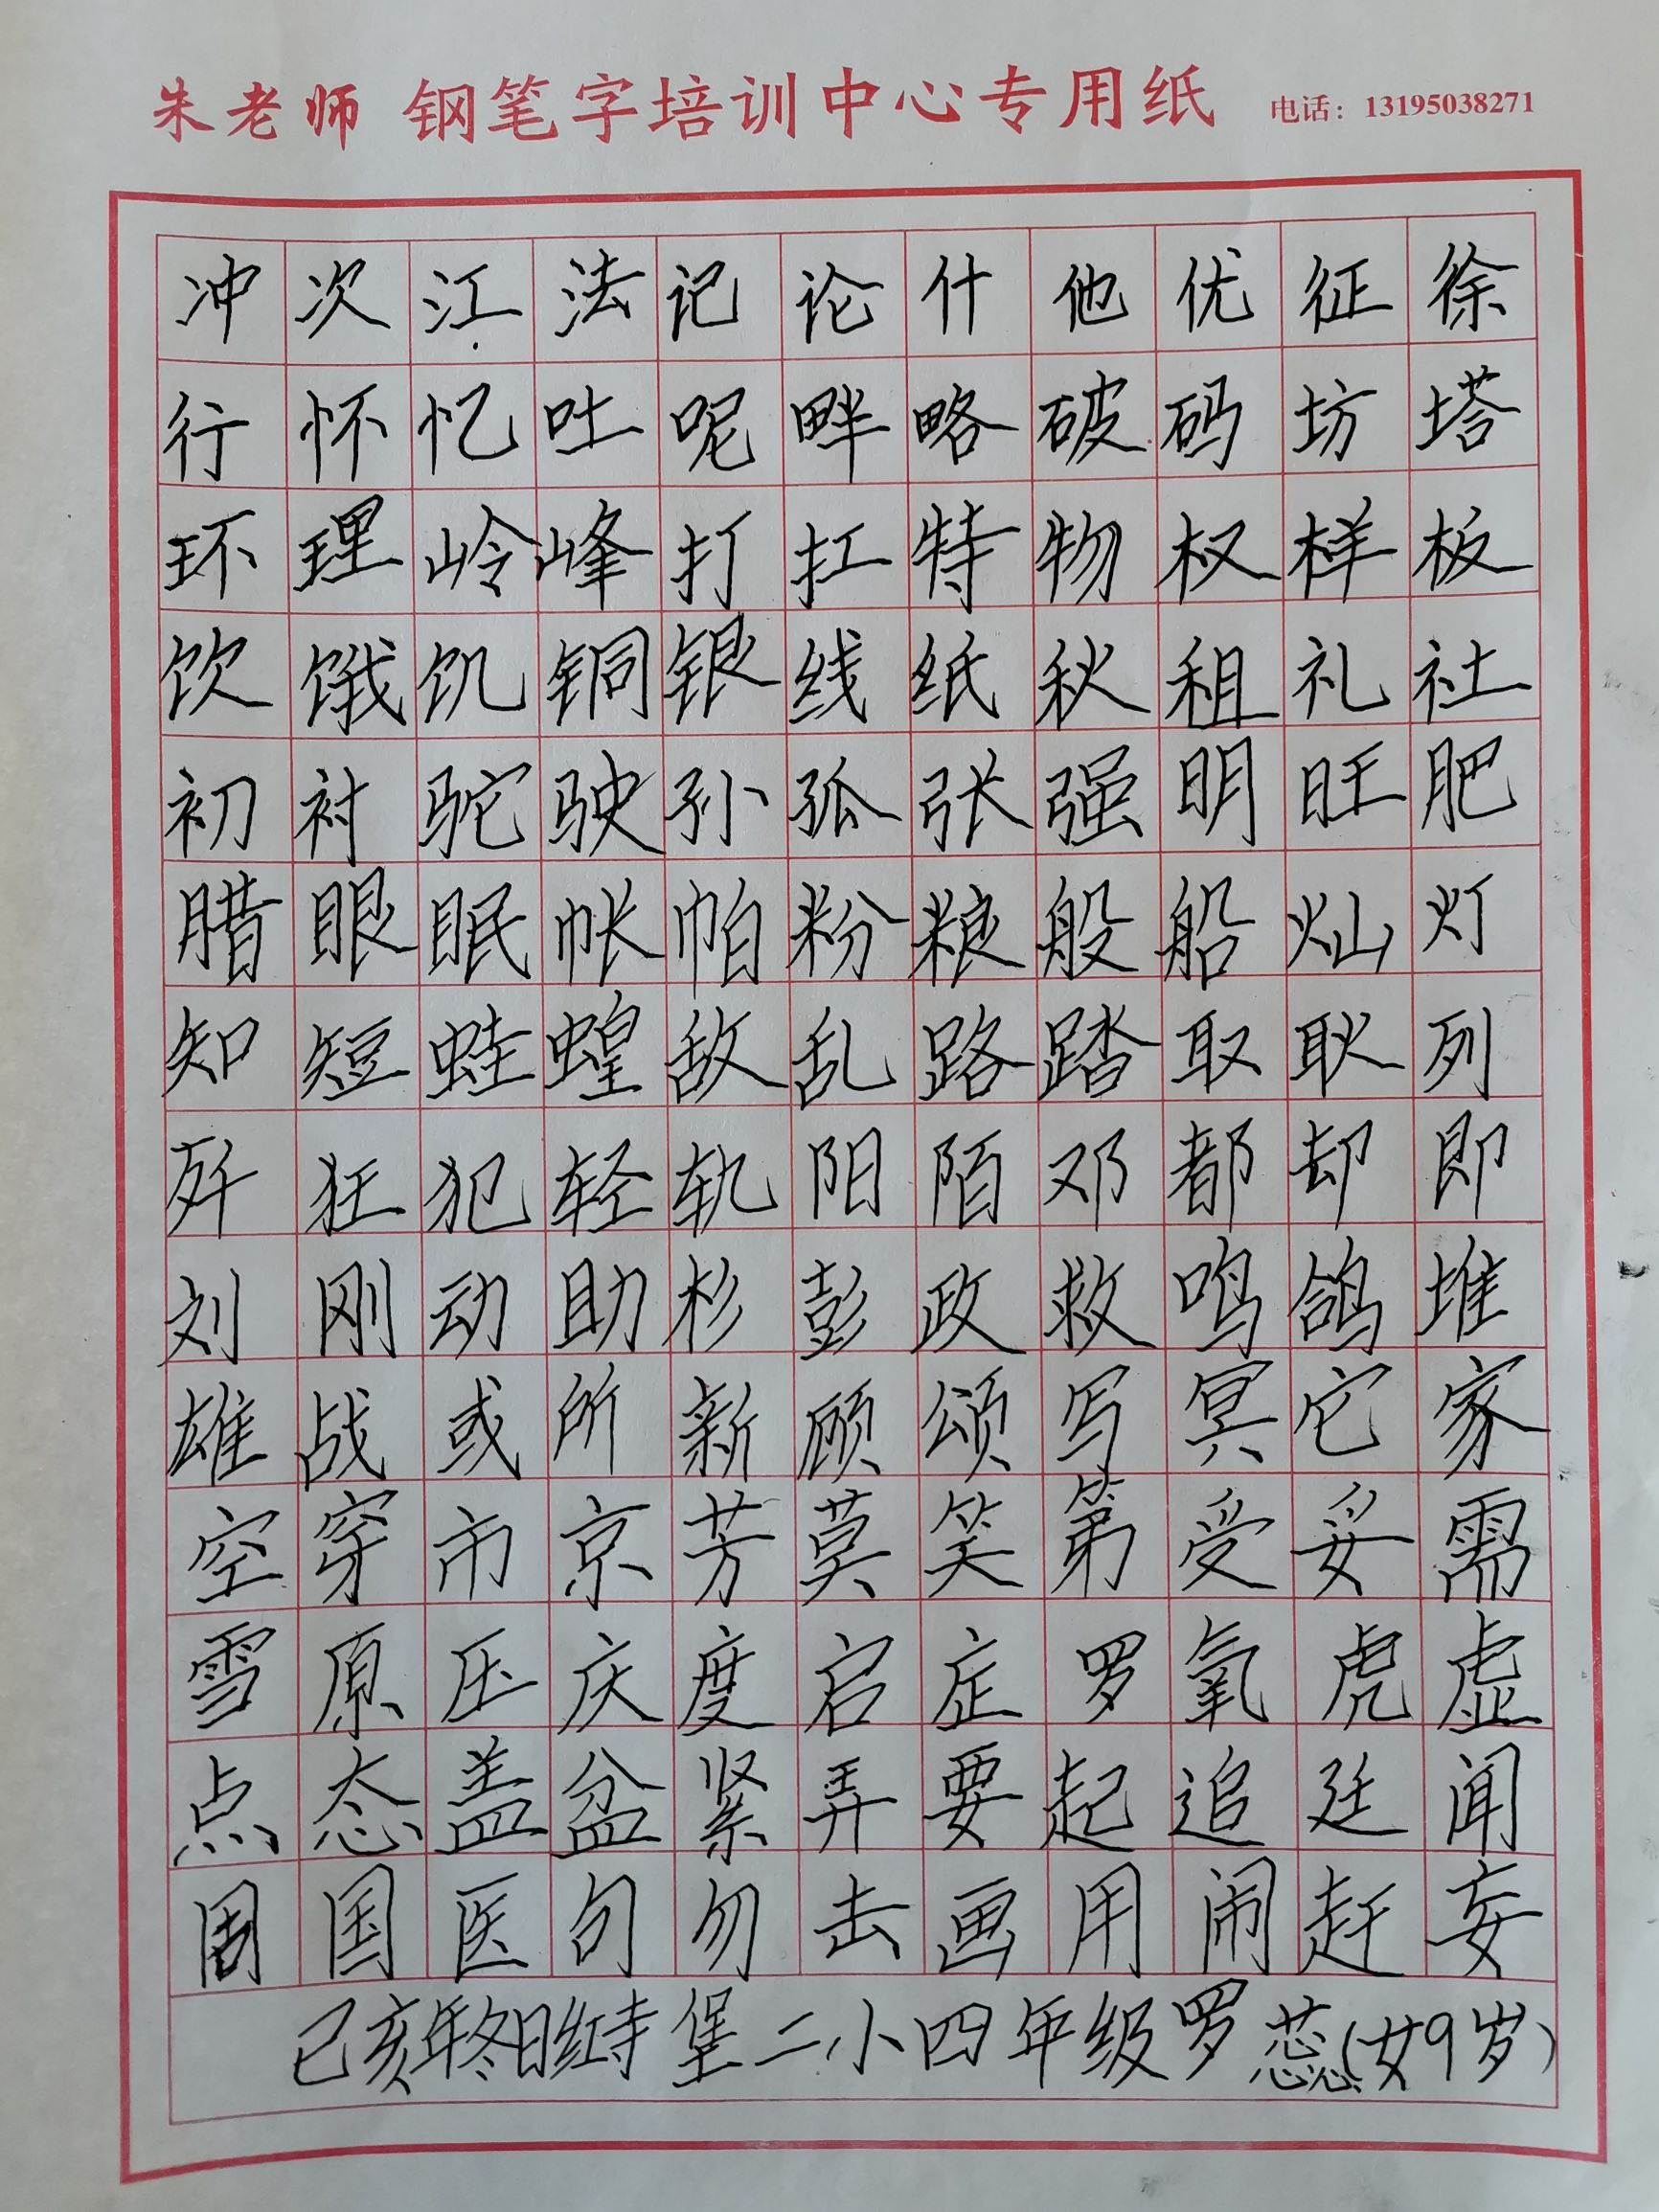 朱老师 钢笔字培训中心专用纸 电话：13195038271
冲次江法记论什他优征徐
行怀忆吐呢畔略破码坊塔
环理岭峰打扛特物权样板
饮饿饥铜银线纸秋租礼社
初衬驼驶孙孤张强明旺肥
腊眼眠帐帕粉粮般船灿灯
知短蛙蝗敌乱路踏取耿列
歼狂犯轻轨阳陌邓都却即
刘刚动助杉彭政救鸣鸽堆
雄战或所新顾颂写冥它家
空穿市京芳莫笑第受妥需
雪原压庆度启症罗氧虎虚
点态盖盆紧弄要起追廷闻
周国医句勿击画用闹赶妄
己亥年冬日红寺堡二小四年级罗蕊(女9岁)